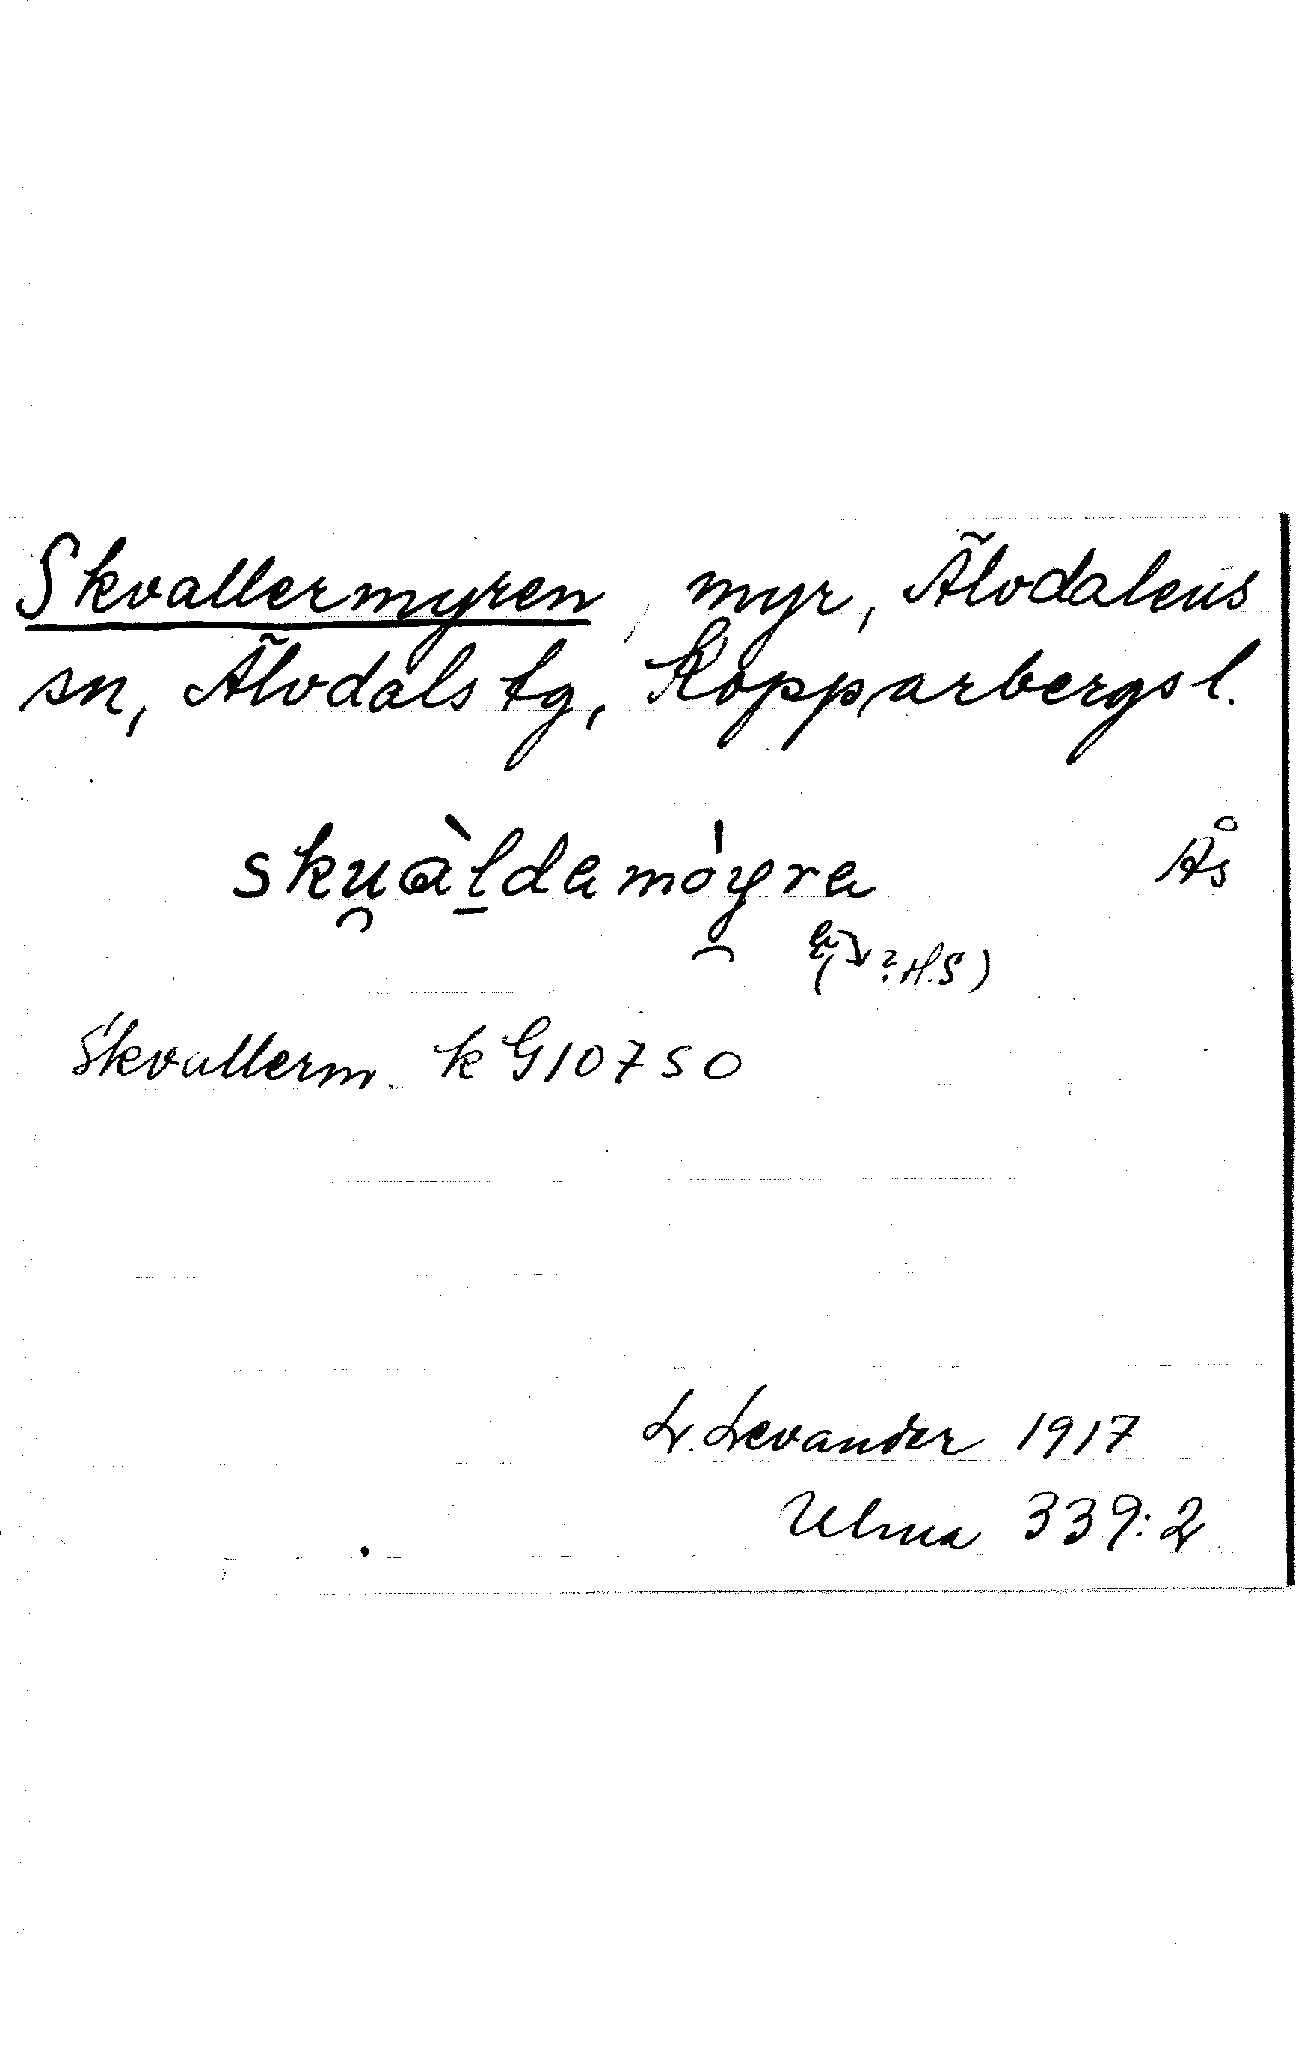 Skvallermyren, myr, Älvdalens
sn, Älvdals tg, Kopparbergs l.
sku̯àl̠damóy̯ra Ås
?H.S)
Skvallerm. k G10750
L. Levander 1917
Ulma 339:2